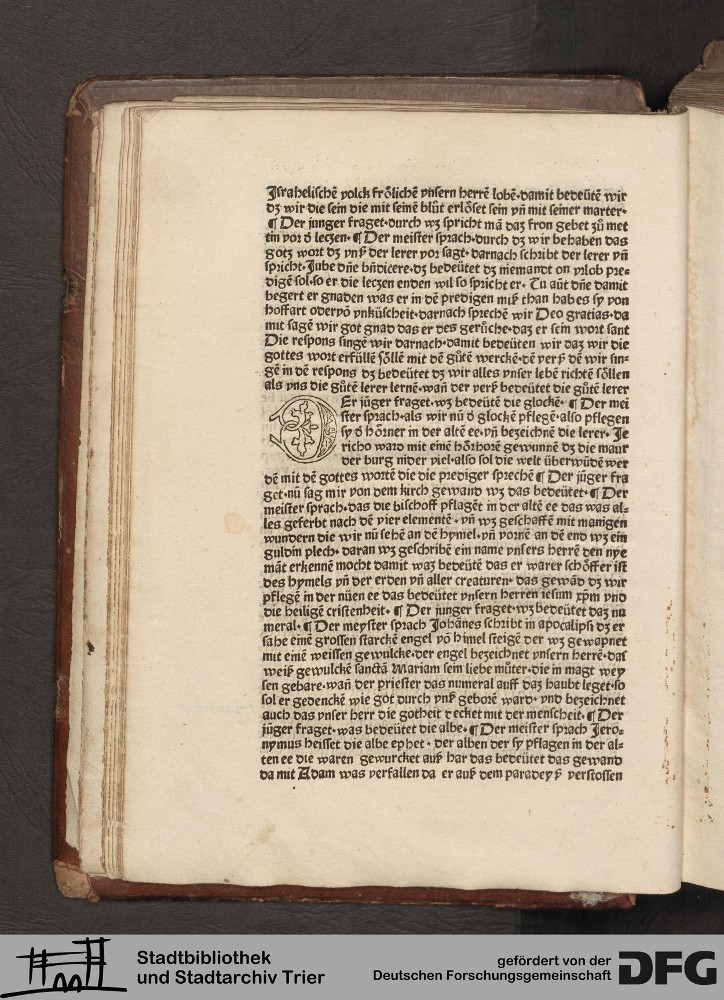 Jsrahelischē volck frölichē vnsern herrē lobē·damit bedeütē wir
dʒ wir die sein die mit seinē blůt erlöset sein vn̄ mit seiner marter·
¶ Der junger fraget·durch wʒ spricht mā daʒ fron gebet zů met
tin vor d̄ leczen·¶ Der meister sprach·durch dʒ wir behaben das
gotʒ wort dʒ vnß der lerer vor sagt·darnach schribt der lerer vn̄
spricht·Jube dn̄e bn̄dicere·dʒ bedeütet dʒ niemandt on vrlob pre-
digē sol·so er die leczen enden wil so spricht er· Tu aūt dn̄e damit
begert er gnaden was er in dē predigen miß than hab es sy von
hoffart oder vō vnküscheit·darnach sprechē wir Deo gratias·da
mit sagē wir got gnad das er des gerůche·daʒ er sein wort sant
Die respons singē wir darnach·damit bedeüten wir daʒ wir die
gottes wort erfüllē söllē mit dē gůtē werckē·dē verß dē wir sin-
gē in dē respons dʒ bedeütet dʒ wir alles vnser lebē richtē söllen
als vns die gůtē lerer lernē·wan̄ der verß bedeütet die gůtē lerer
DEr jüger fraget·wʒ bedeutē die glockē· ¶ Der mei
ster sprach·als wir nū d̄ glockē pflegē·also pflegen
sy d̄ hörner in der altē ee·vn̄ bezeichnē die lerer· Je
richo ward mit einē hörhorē gewunnē dʒ die maur
der burg nider viel·also sol die welt überwūdē wer
dē mit dē gottes wortē die die prediger sprechē ¶ Der jüger fra
get·nū sag mir von dem kirch gewand wʒ das bedeütet·¶ Der
meister sprach·das die bischoff pflagēt in der altē ee das was al-
les geferbt nach dē vier elementē · vn̄ wʒ geschaffē mit manigen
wundern die wir nū sehē an dē hymel·vn̄ vornē an dē end wʒ ein
guldin plech· daran wʒ geschribē ein name vnsers herrē den nye
māt erkennē mocht damit waʒ bedeütē das er warer schöffer ist
des hymels vn̄ der erden vn̄ aller creaturen· das gewād dʒ wir
pflegē in der nüen ee das bedeütet vnsern herren iesum xp̄m vnd
die heiligē cristenheit· ¶ Der junger fraget·wʒ bedeütet daʒ nu
meral·¶ Der meyster sprach Johānes schribt in apocalipsi dʒ er
sahe einē grossen starckē engel vō himel steigē der wʒ gewapnet
mit einē weissen gewulcke·der engel bezeichnet vnsern herrē·das
weiß gewulckē sanctā Mariam sein liebe můter·die in magt wey
sen gebare·wan̄ der priester das numeral auff daʒ haubt leget·so
sol er gedenckē wie got durch vnß geborē ward· vnd bezeichnet
auch das vnser herr die gotheit decket mit der menscheit·¶ Der
jüger fraget·was bedeütet die albe·¶ Der meister sprach Jero-
nymus heisset die albe ephet · der alben der sy pflagen in der al-
ten ee die waren gewurcket auß har das bedeütet das gewand
da mit Adam was verfallen da er auß dem paradeyß verstossen
Stadtbibliothek
und Stadtarchiv Trier
gefördert von der
Deutschen Forschungsgemeinschaft
DFG